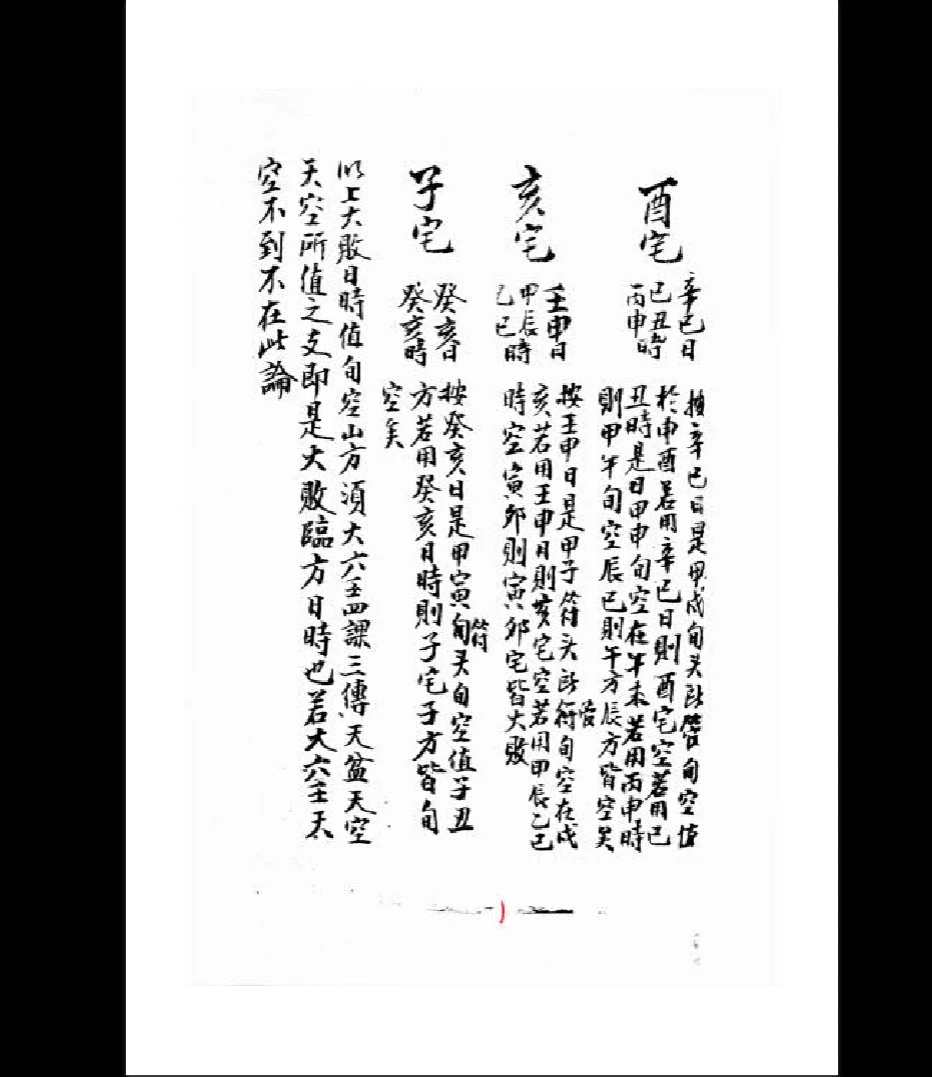 酉宅
辛巳日
己丑時
丙申時
按辛巳日是甲戌旬头所管旬空值
於申酉若用辛巳日則酉宅空若用己
丑時是日甲申旬空在午未若用丙申時
則甲午旬空辰巳則午方辰方皆空矣
亥宅
壬申日
甲辰時
乙巳時
按壬申日是甲子符头所管旬空在戌
亥若用壬申日則亥宅空若用甲辰乙巳
時空寅卯則寅卯宅皆大敗
子宅
癸亥日
癸亥時
按癸亥日是甲寅符头旬空值子丑
方若用癸亥日時則子宅子方皆旬
空矣
以上大敗日時值旬空山方須大六壬四課三傳天盆天空
天空所值之支即是大敗臨方日時也若大六壬天
空不到不在此論